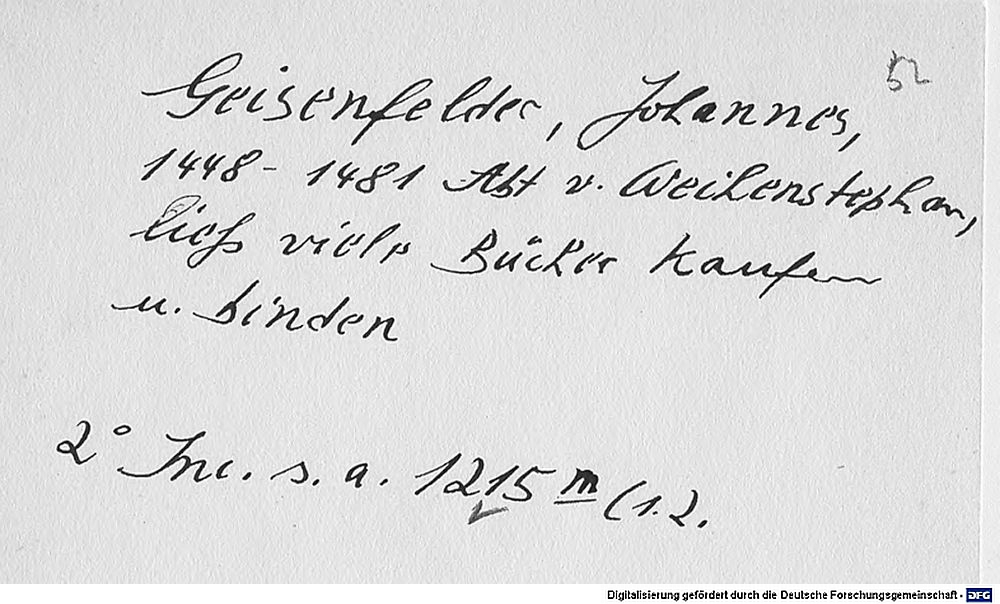 52
Geisenfelder, Johannes,
1448 - 1481 Abt v. Weihenstephan,
ließ viele Bücher kaufen
u. binden
2° Inc. s. a. 1215 m (1.2.
Digitalisierung gefördert durch die Deutsche Forschungsgemeinschaft - DFG